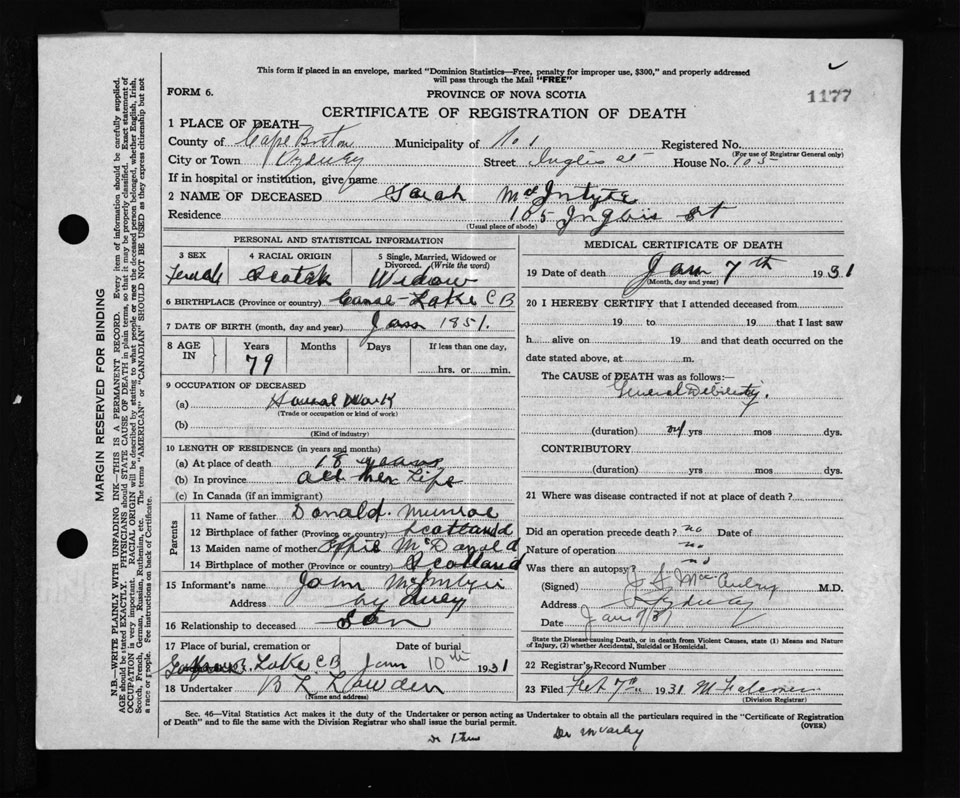 This form if placed in an envelope, marked "Dominion Statistics—Free, penalty for improper use, $300," and properly addressed
will pass through the Mail "FREE"
FORM 6.
PROVINCE OF NOVA SCOTIA
1177
CERTIFICATE OF REGISTRATION OF DEATH
1 PLACE OF DEATH—
County of Cape Breton Municipality of No 1 Registered No.
(For use of Registrar General only)
City or Town Sydney Street Inglis st House No. 105
If in hospital or institution, give name
2 NAME OF DECEASED Sarah McIntyre
Residence 105 Inglis st
(Usual place of abode)
PERSONAL AND STATISTICAL INFORMATION
3 SEX
Female
4 RACIAL ORIGIN
Scotch
5 Single, Married, Widowed or
Divorced. (Write the word)
Widow
6 BIRTHPLACE (Province or country) Lake C B
7 DATE OF BIRTH (month, day and year) Jan 1851.
8 AGE
IN
Years
79
Months
Days
If less than one day,
hrs. or min.
9 OCCUPATION OF DECEASED
(a) House Work
(Trade or occupation or kind of work)
(b)
(Kind of industry)
10 LENGTH OF RESIDENCE (in years and months)
(a) At place of death 18 years
(b) In province all her Life
(c) In Canada (if an immigrant)
Parents
11 Name of father Donald Munroe
12 Birthplace of father (Province or country) Scotland
13 Maiden name of mother Effie McDonald
14 Birthplace of mother (Province or country) Scotland
15 Informant's name John McIntyre
Address Sydney
16 Relationship to deceased Son
17 Place of burial, cremation or Date of burial
Lake C B Jan 10th 1931
18 Undertaker
(Name and address)
MEDICAL CERTIFICATE OF DEATH
19 Date of death Jan 7th 1931
(Month, day and year)
20 I HEREBY CERTIFY that I attended deceased from
19 to 19 that I last saw
h alive on 19 and that death occurred on the
date stated above, at m.
The CAUSE of DEATH was as follows:—
General Debility.
(duration) yrs mos dys.
CONTRIBUTORY
(duration) yrs mos dys.
21 Where was disease contracted if not at place of death?
Did an operation precede death? no Date of
Nature of operation no
Was there an autopsy? no
(Signed) M.D.
Address Sydney
Date Jan 7/31
State the Disease causing Death, or in death from Violent Causes, state (1) Means and Nature
of Injury, (2) whether Accidental, Suicidal or Homicidal.
22 Registrar's Record Number
23 Filed Feb 7th 1931
(Division Registrar)
Sec. 46—Vital Statistics Act makes it the duty of the Undertaker or person acting as Undertaker to obtain all the particulars required in the "Certificate of Registration
of Death" and to file the same with the Division Registrar who shall issue the burial permit.
(OVER)
MARGIN RESERVED FOR BINDING
N.B.—WRITE PLAINLY WITH UNFADING INK—THIS IS A PERMANENT RECORD. Every item of information should be carefully supplied.
AGE should be stated EXACTLY. PHYSICIANS should STATE CAUSE OF DEATH in plain terms, so that it may be properly classified. Exact statement of
OCCUPATION is very important. RACIAL ORIGIN will be described by stating to what people or race the deceased person belonged, whether English, Irish,
Scotch, French, German, Russian, Ruthenian, etc. The terms "AMERICAN" or "CANADIAN" SHOULD NOT BE USED as they express citizenship but not
a race or people. See instructions on back of Certificate.